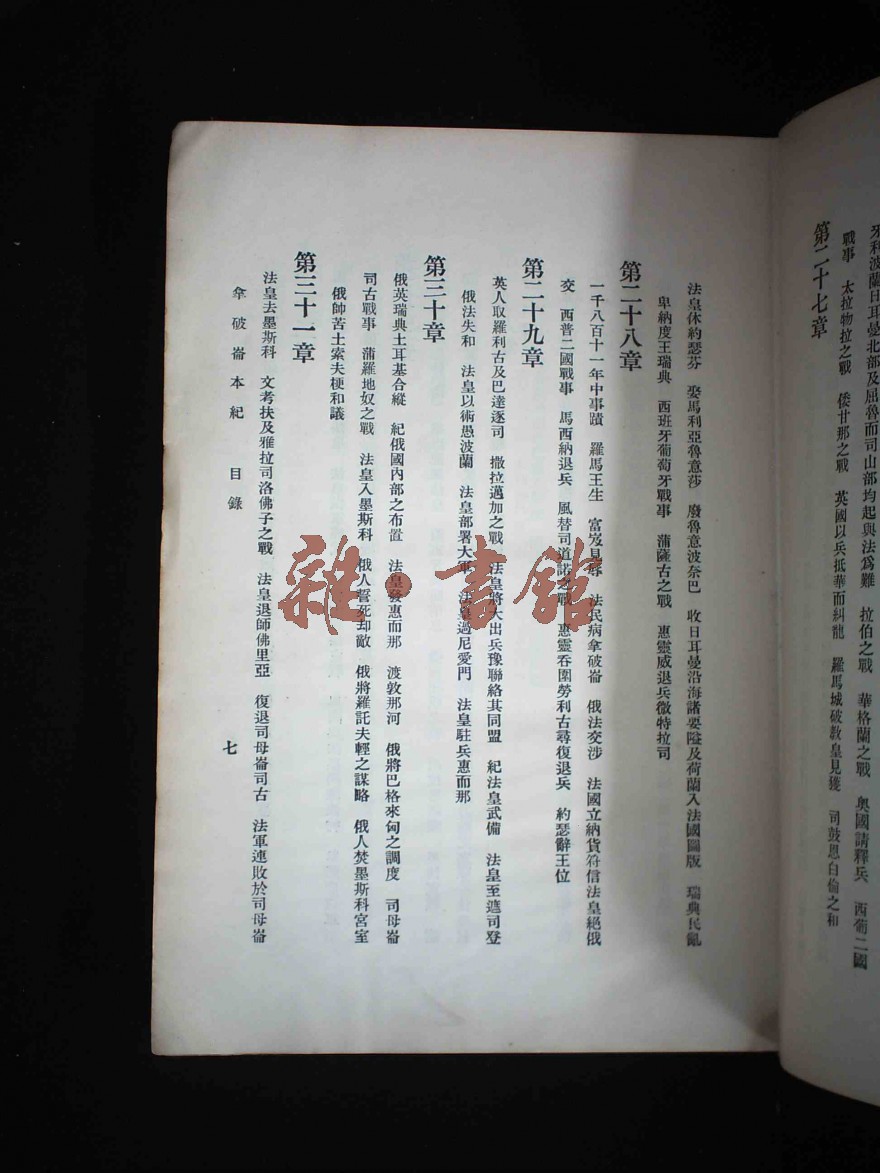 牙利波蘭日耳曼北部及屈魯而司山部均起與法爲難　拉伯之戰　華格蘭之戰　奧國請釋兵　西葡二國
戰事　太拉物拉之戰　倭甘那之戰　英國以兵抵華而糾龍　羅馬城破教皇見獲　司鼓恩白倫之和
第二十七章
法皇休約瑟芬　娶馬利亞魯意莎　廢魯意波奈巴　收日耳曼沿海諸要隘及荷蘭入法國圖版　瑞典民亂
卑納度王瑞典　西班牙葡萄牙戰事　蒲薩古之戰　惠靈威退兵微特拉司
第二十八章
一千八百十一年中事蹟　羅馬王生　富岌見辱　法民病拿破崙　俄法交涉　法國立納貨符信法皇絕俄
交　西普二國戰事　馬西納退兵　風替司道諾之戰　惠靈吞圍勞利古尋復退兵　約瑟辭王位
第二十九章
英人取羅利古及巴達逐司　撒拉邁加之戰　法皇將大出兵豫聯絡其同盟　紀法皇武備　法皇至遮司登
俄法失和　法皇以術愚波蘭　法皇部署大軍　法皇過尼愛門　法皇駐兵惠而那
第三十章
俄英瑞典土耳基合縱　紀俄國內部之布置　法皇發惠而那　渡敦那河　俄將巴格來甸之調度　司母崙
司古戰事　蒲羅地奴之戰　法皇入墨斯科　俄人誓死却敵　俄將羅託夫輕之謀略　俄人焚墨斯科宮室
俄帥苦土索夫梗和議
第三十一章
法皇去墨斯科　文考扶及雅拉司洛佛子之戰　法皇退師佛里亞　復退司母崙司古　法軍連敗於司母崙
拿破崙本紀　目錄
七
雜·書館